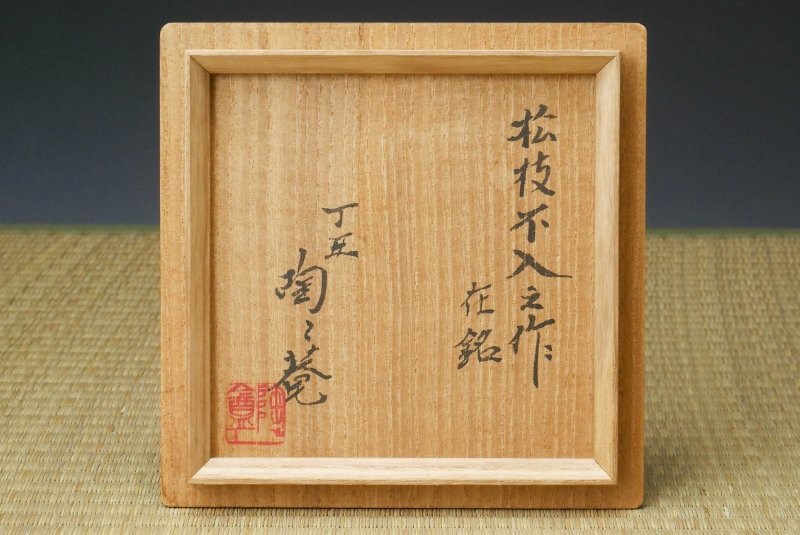 松枝不入之作
在銘
丁丑
陶々菴